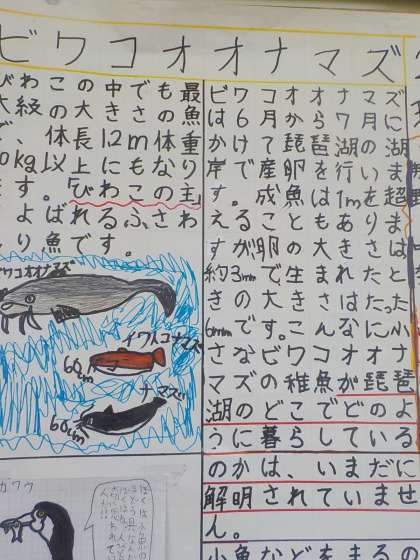 ビワコオオナマズ
びわこの中でも最
大級の大きさの魚
で、体長1.2m体重
0kg以上にもなり
ます。「びわこの主」
よばれるふさわ
しり魚です。
ビワコオオナマズ
イワトコナマズ
60cm
ナマズ
60cm
カワウ
ビワコオオナマズ
は6月から7月に
かけて琵琶湖の湖
岸で産卵を行いま
す。成魚は1mを超
えることもありま
すが卵の大きさは
約3mmで生まれたと
きの大きさはたったか
6mmです。こんなに小
さなビワコオオナ
マズの稚魚が琵琶
湖のどこでどのよ
うに暮らしている
のかは、いまだに
解明されていませ
ん。
小魚などをまるの